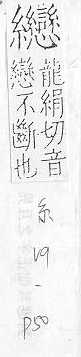 纞
龍絹切音
戀不斷也
糸
19
-
p50